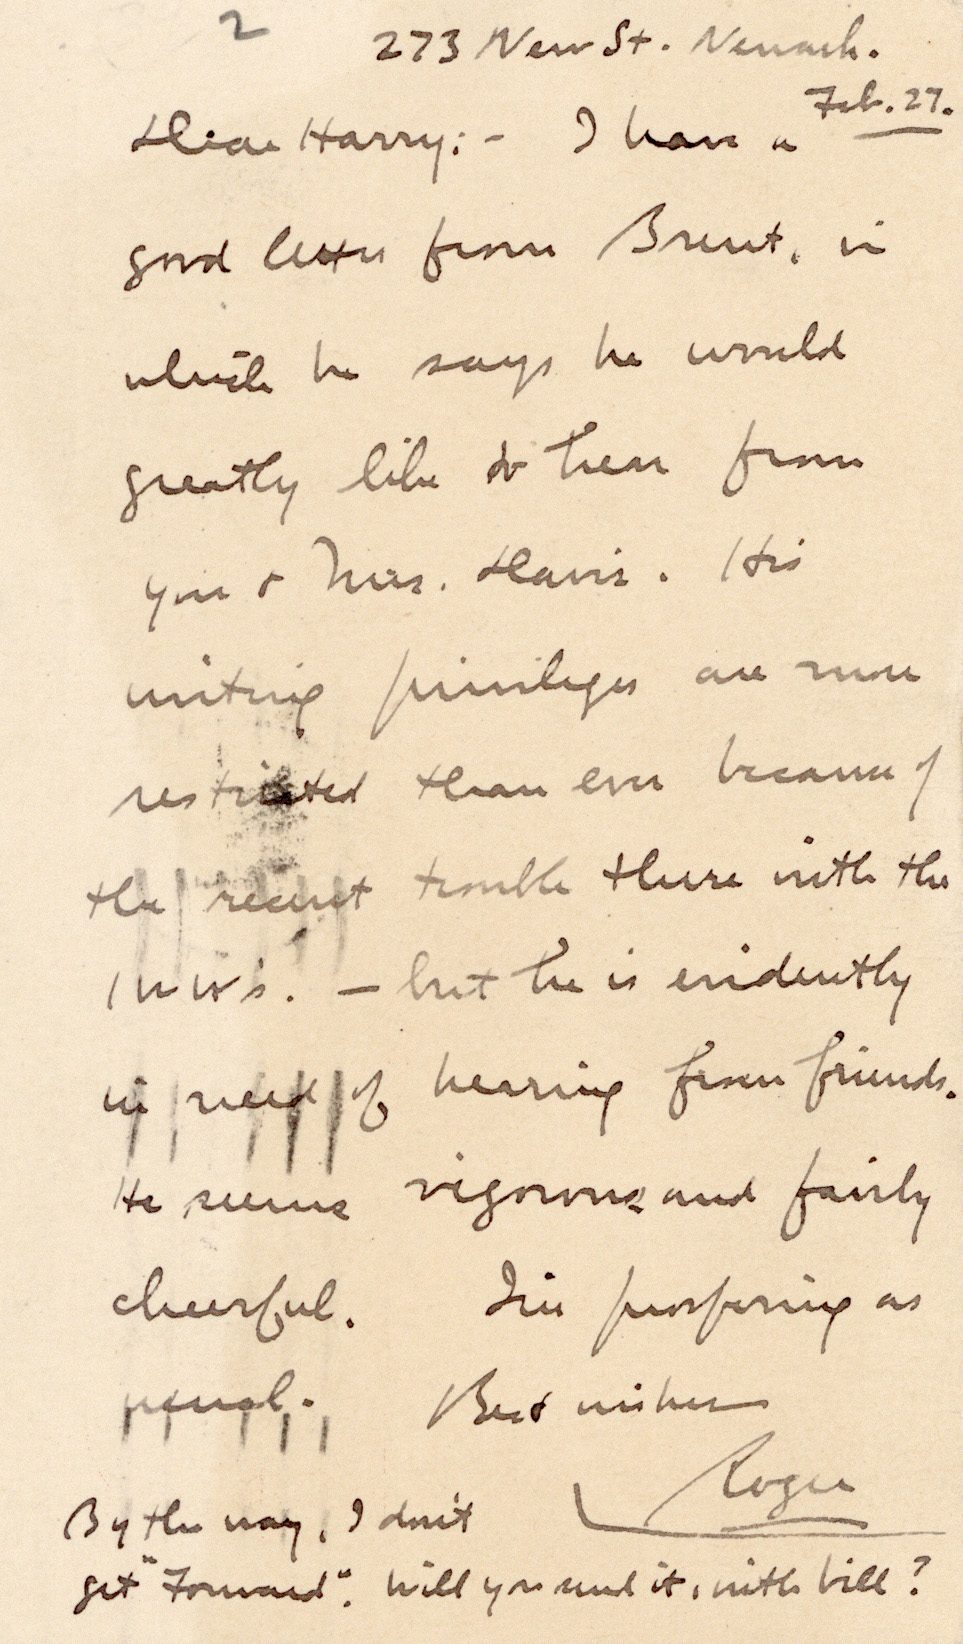 2
273 New St. Newark.
Feb. 27.
Dear Harry:- I have a
good letter from Brent, in
which he says he would
greatly like to hear from
you & Mrs. Davis. His
writing privileges are more
restricted than ever because of
the recent trouble there with the
IWW's. — but he is evidently
in need of hearing from friends.
He seems vigorous and fairly
cheerful. I'm prospering as
usual. Best wishes
Roger
By the way, I don't
get "Forward". Will you send it, with bill?